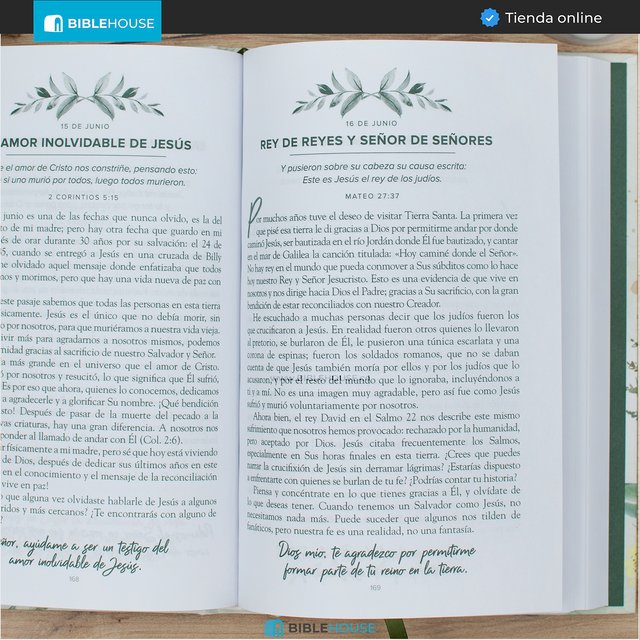 BIBLEHOUSE
Tienda online
15 DE JUNIO
AMOR INOLVIDABLE DE JESÚS
e el amor de Cristo nos constriñe, pensando esto:
si uno murió por todos, luego todos murieron.
2 CORINTIOS 5:15
junio es una de las fechas que nunca olvido, es la del
to de mi madre; pero hay otra fecha que guardo en mi
és de orar durante 30 años por su salvación: el 24 de
5, cuando se entregó a Jesús en una cruzada de Billy
he olvidado aquel mensaje donde enfatizaba que todos
os y morimos, pero que hay una vida nueva de paz con
este pasaje sabemos que todas las personas en esta tierra
sicamente. Jesús es el único que no debía morir, sin
o por nosotros, para que muriéramos a nuestra vida vieja.
ivir más para agradarnos a nosotros mismos, podemos
nidad gracias al sacrificio de nuestro Salvador y Señor.
a más grande en el universo que el amor de Cristo.
por nosotros y resucitó, lo que significa que Él sufrió,
. Es por eso que ahora, quienes lo conocemos, dedicamos
a agradecerle y a glorificar su Nombre. ¡Qué bendición
sto! Después de pasar de la muerte del pecado a la
vas criaturas, hay una gran diferencia. A nosotros nos
ponder al llamado de andar con Él (Col. 2:6).
r físicamente a mi madre, pero sé que hoy está viviendo
de Dios, después de dedicar sus últimos años en este
en el conocimiento y el mensaje de la reconciliación
vive en paz!
o que alguna vez olvidaste hablarle de Jesús a algunos
ridos y más cercanos? ¿Te encontrarás con alguno de
?
ñor, ayúdame a ser un testigo del
amor inolvidable de Jesús.
168
16 DE JUNIO
REY DE REYES Y SEÑOR DE SEÑORES
Y pusieron sobre su cabeza su causa escrita:
Este es Jesús el rey de los judíos.
MATEO 27:37
Por muchos años tuve el deseo de visitar Tierra Santa. La primera vez
que pisé esa tierra le di gracias a Dios por permitirme andar por donde
caminó Jesús, ser bautizada en el río Jordán donde Él fue bautizado, y cantar
en el mar de Galilea la canción titulada: «Hoy caminé donde el Señor».
No hay rey en el mundo que pueda conmover a Sus súbditos como lo hace
hoy nuestro Rey y Señor Jesucristo. Esto es una evidencia de que vive en
nosotros y nos dirige hacia Dios el Padre; gracias a Su sacrificio, con la gran
bendición de estar reconciliados con nuestro Creador.
He escuchado a muchas personas decir que los judíos fueron los
que crucificaron a Jesús. En realidad fueron otros quienes lo llevaron
al pretorio, se burlaron de Él, le pusieron una túnica escarlata y una
corona de espinas; fueron los soldados romanos, que no se daban
cuenta de que Jesús también moría por ellos y por los judíos que lo
acusaron, y por el resto del mundo que lo ignoraba, incluyéndonos a
ti y a mí. No es una imagen muy agradable, pero así fue como Jesús
sufrió y murió voluntariamente por nosotros.
Ahora bien, el rey David en el Salmo 22 nos describe este mismo
sufrimiento que nosotros hemos provocado: rechazado por la humanidad,
pero aceptado por Dios. Jesús citaba frecuentemente los Salmos,
especialmente en Sus horas finales en esta tierra. ¿Crees que puedes
narrar la crucifixión de Jesús sin derramar lágrimas? ¿Estarías dispuesto
a enfrentarte con quienes se burlan de tu fe? ¿Podrías contar tu historia?
Piensa y concéntrate en lo que tienes gracias a Él, y olvídate de
lo que deseas tener. Cuando tenemos un Salvador como Jesús, no
necesitamos nada más. Puede suceder que algunos nos tilden de
fanáticos, pero nuestra fe es una realidad, no una fantasía.
Dios mío, te agradezco por permitirme
formar parte de tu reino en la tierra.
169
BIBLEHOUSE